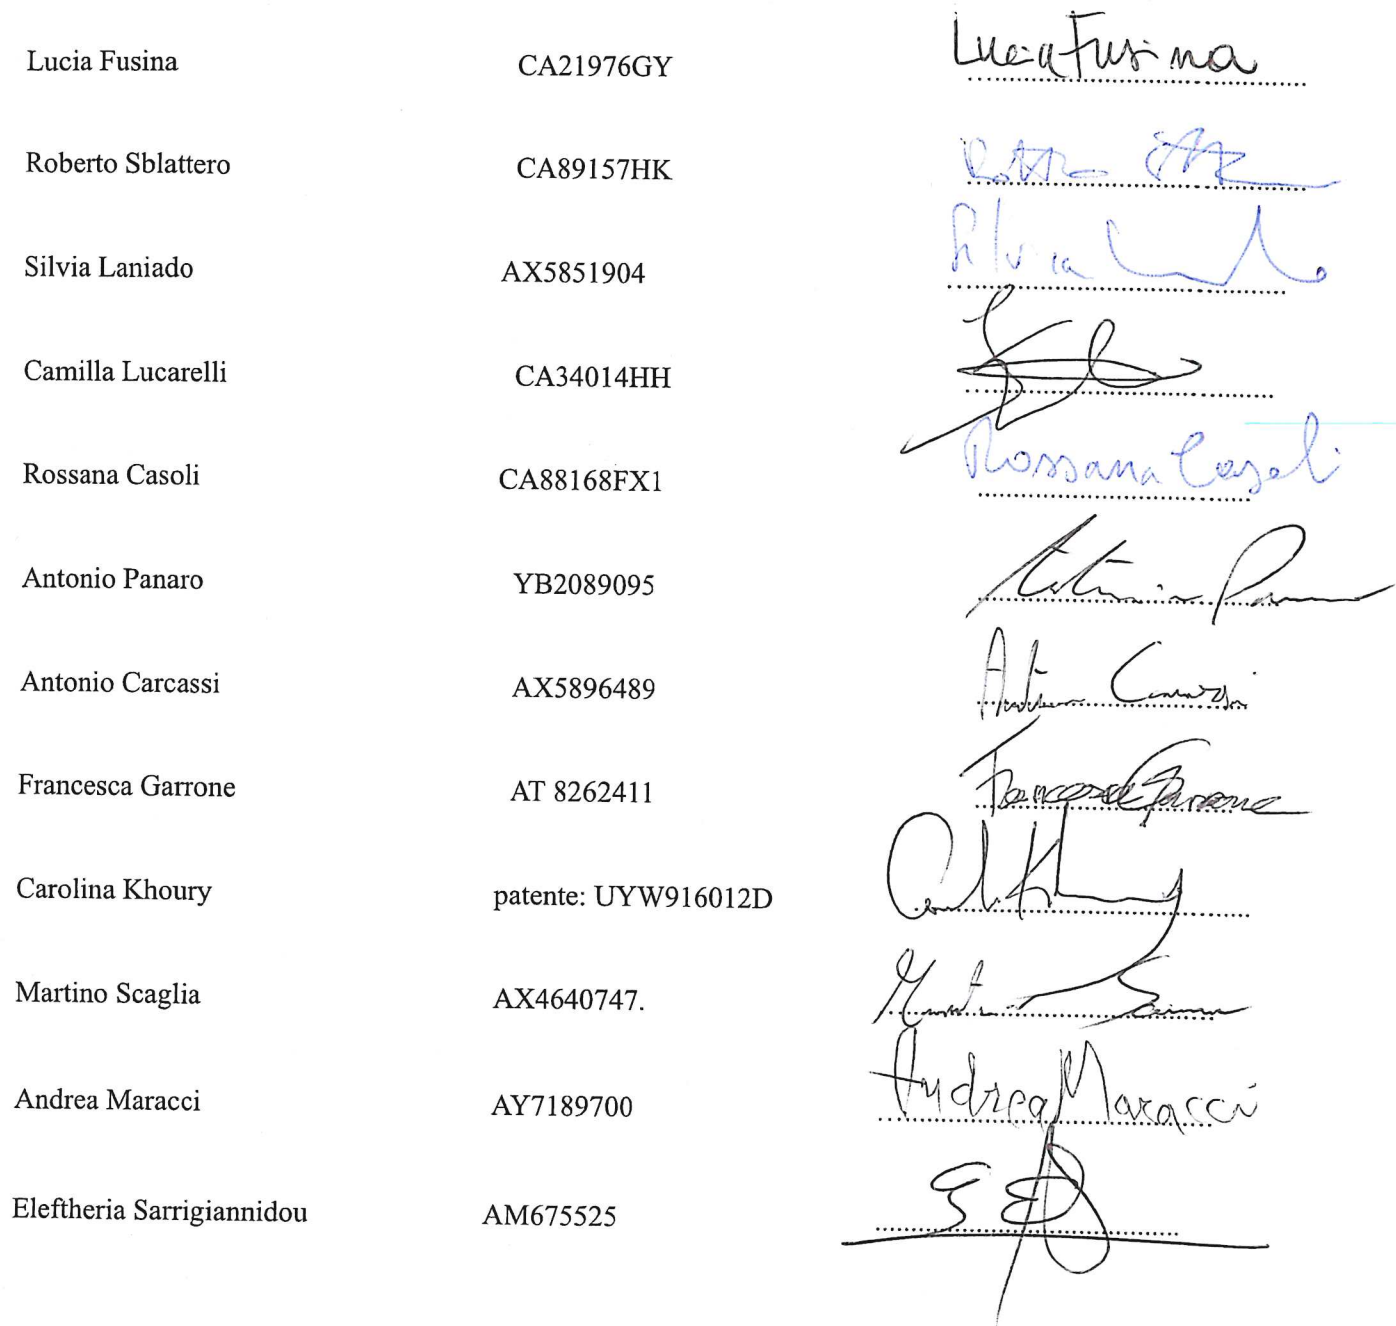 Lucia Fusina CA21976GY Lucia Fusina
Roberto Sblattero CA89157HK
Silvia Laniado AX5851904 Silvia
Camilla Lucarelli CA34014HH
Rossana Casoli CA88168FX1 Rossana Casoli
Antonio Panaro YB2089095
Antonio Carcassi AX5896489
Francesca Garrone AT 8262411 Francesca Garrone
Carolina Khoury patente: UYW916012D
Martino Scaglia AX4640747.
Andrea Maracci AY7189700 Andrea Maracci
Eleftheria Sarrigiannidou AM675525